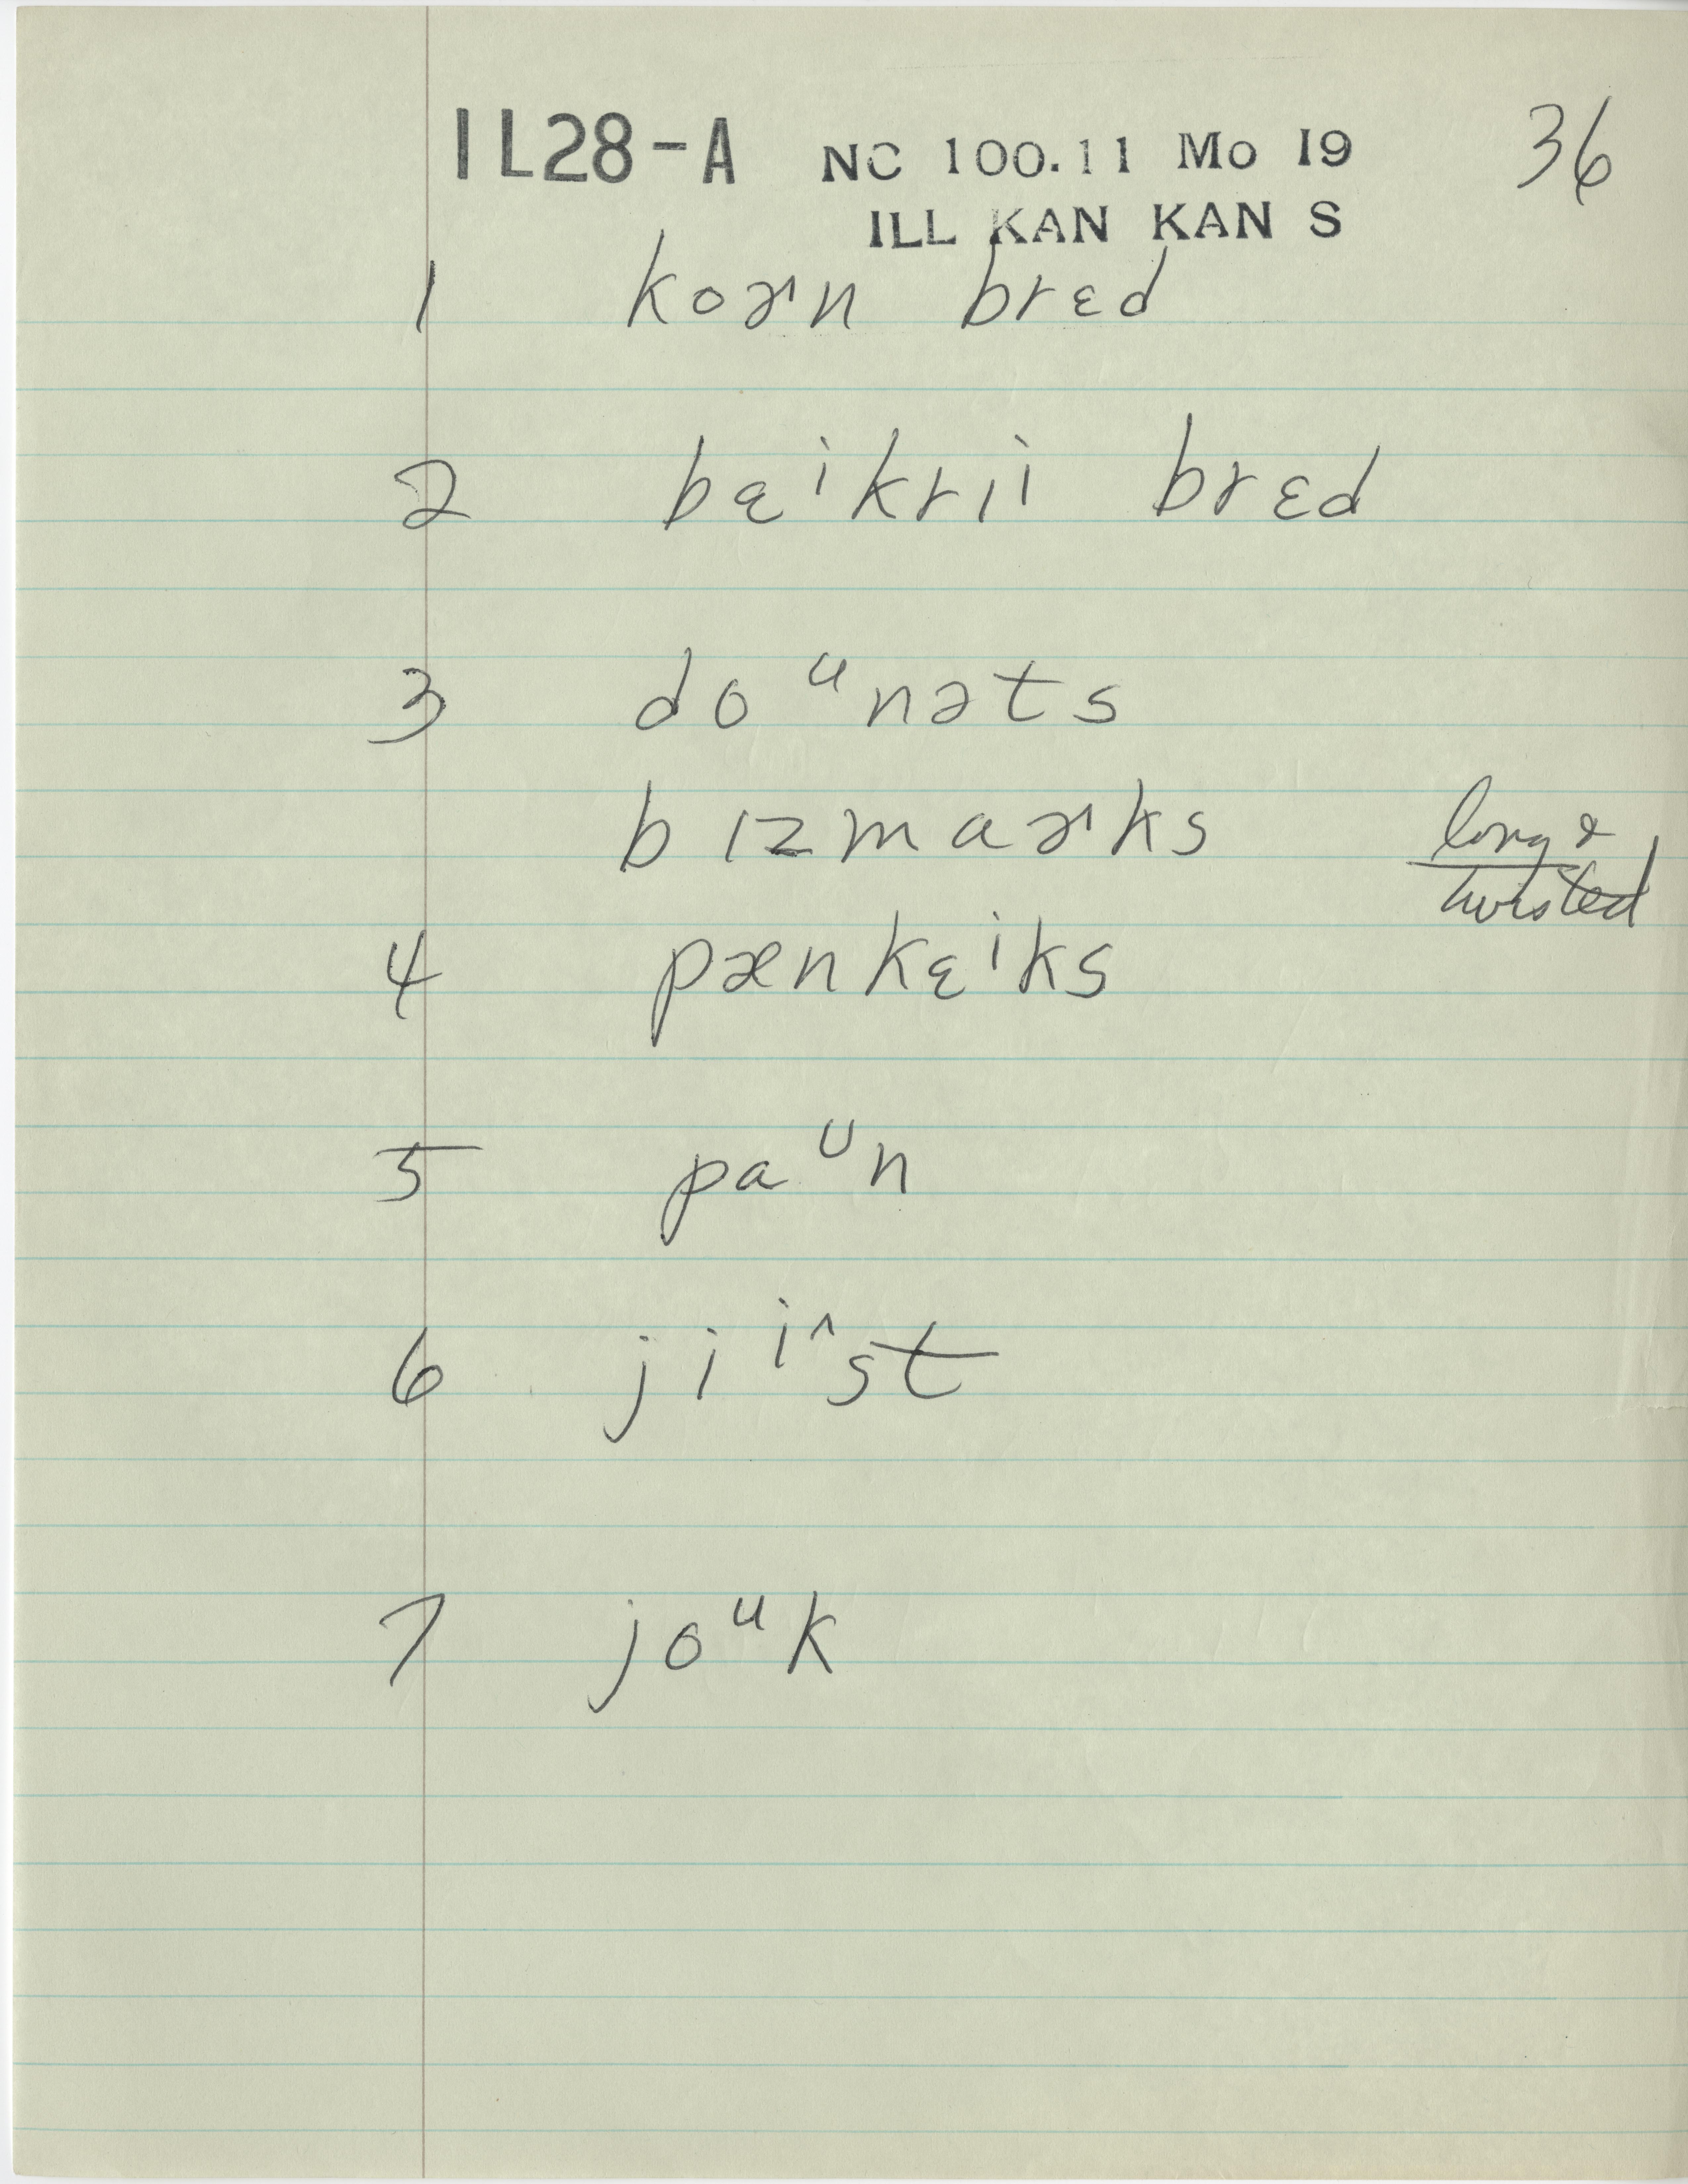 IL28-A NC 100.11 Mo I9 36
ILL KAN KAN S
1 koɚn brɛd
2 bɛⁱkrii brɛd
3 doᵘnəts
bɪzmaɚks long &
twisted
4 pænkɛⁱks
5 paᵁn
6 jiⁱ^st
7 joᵘk